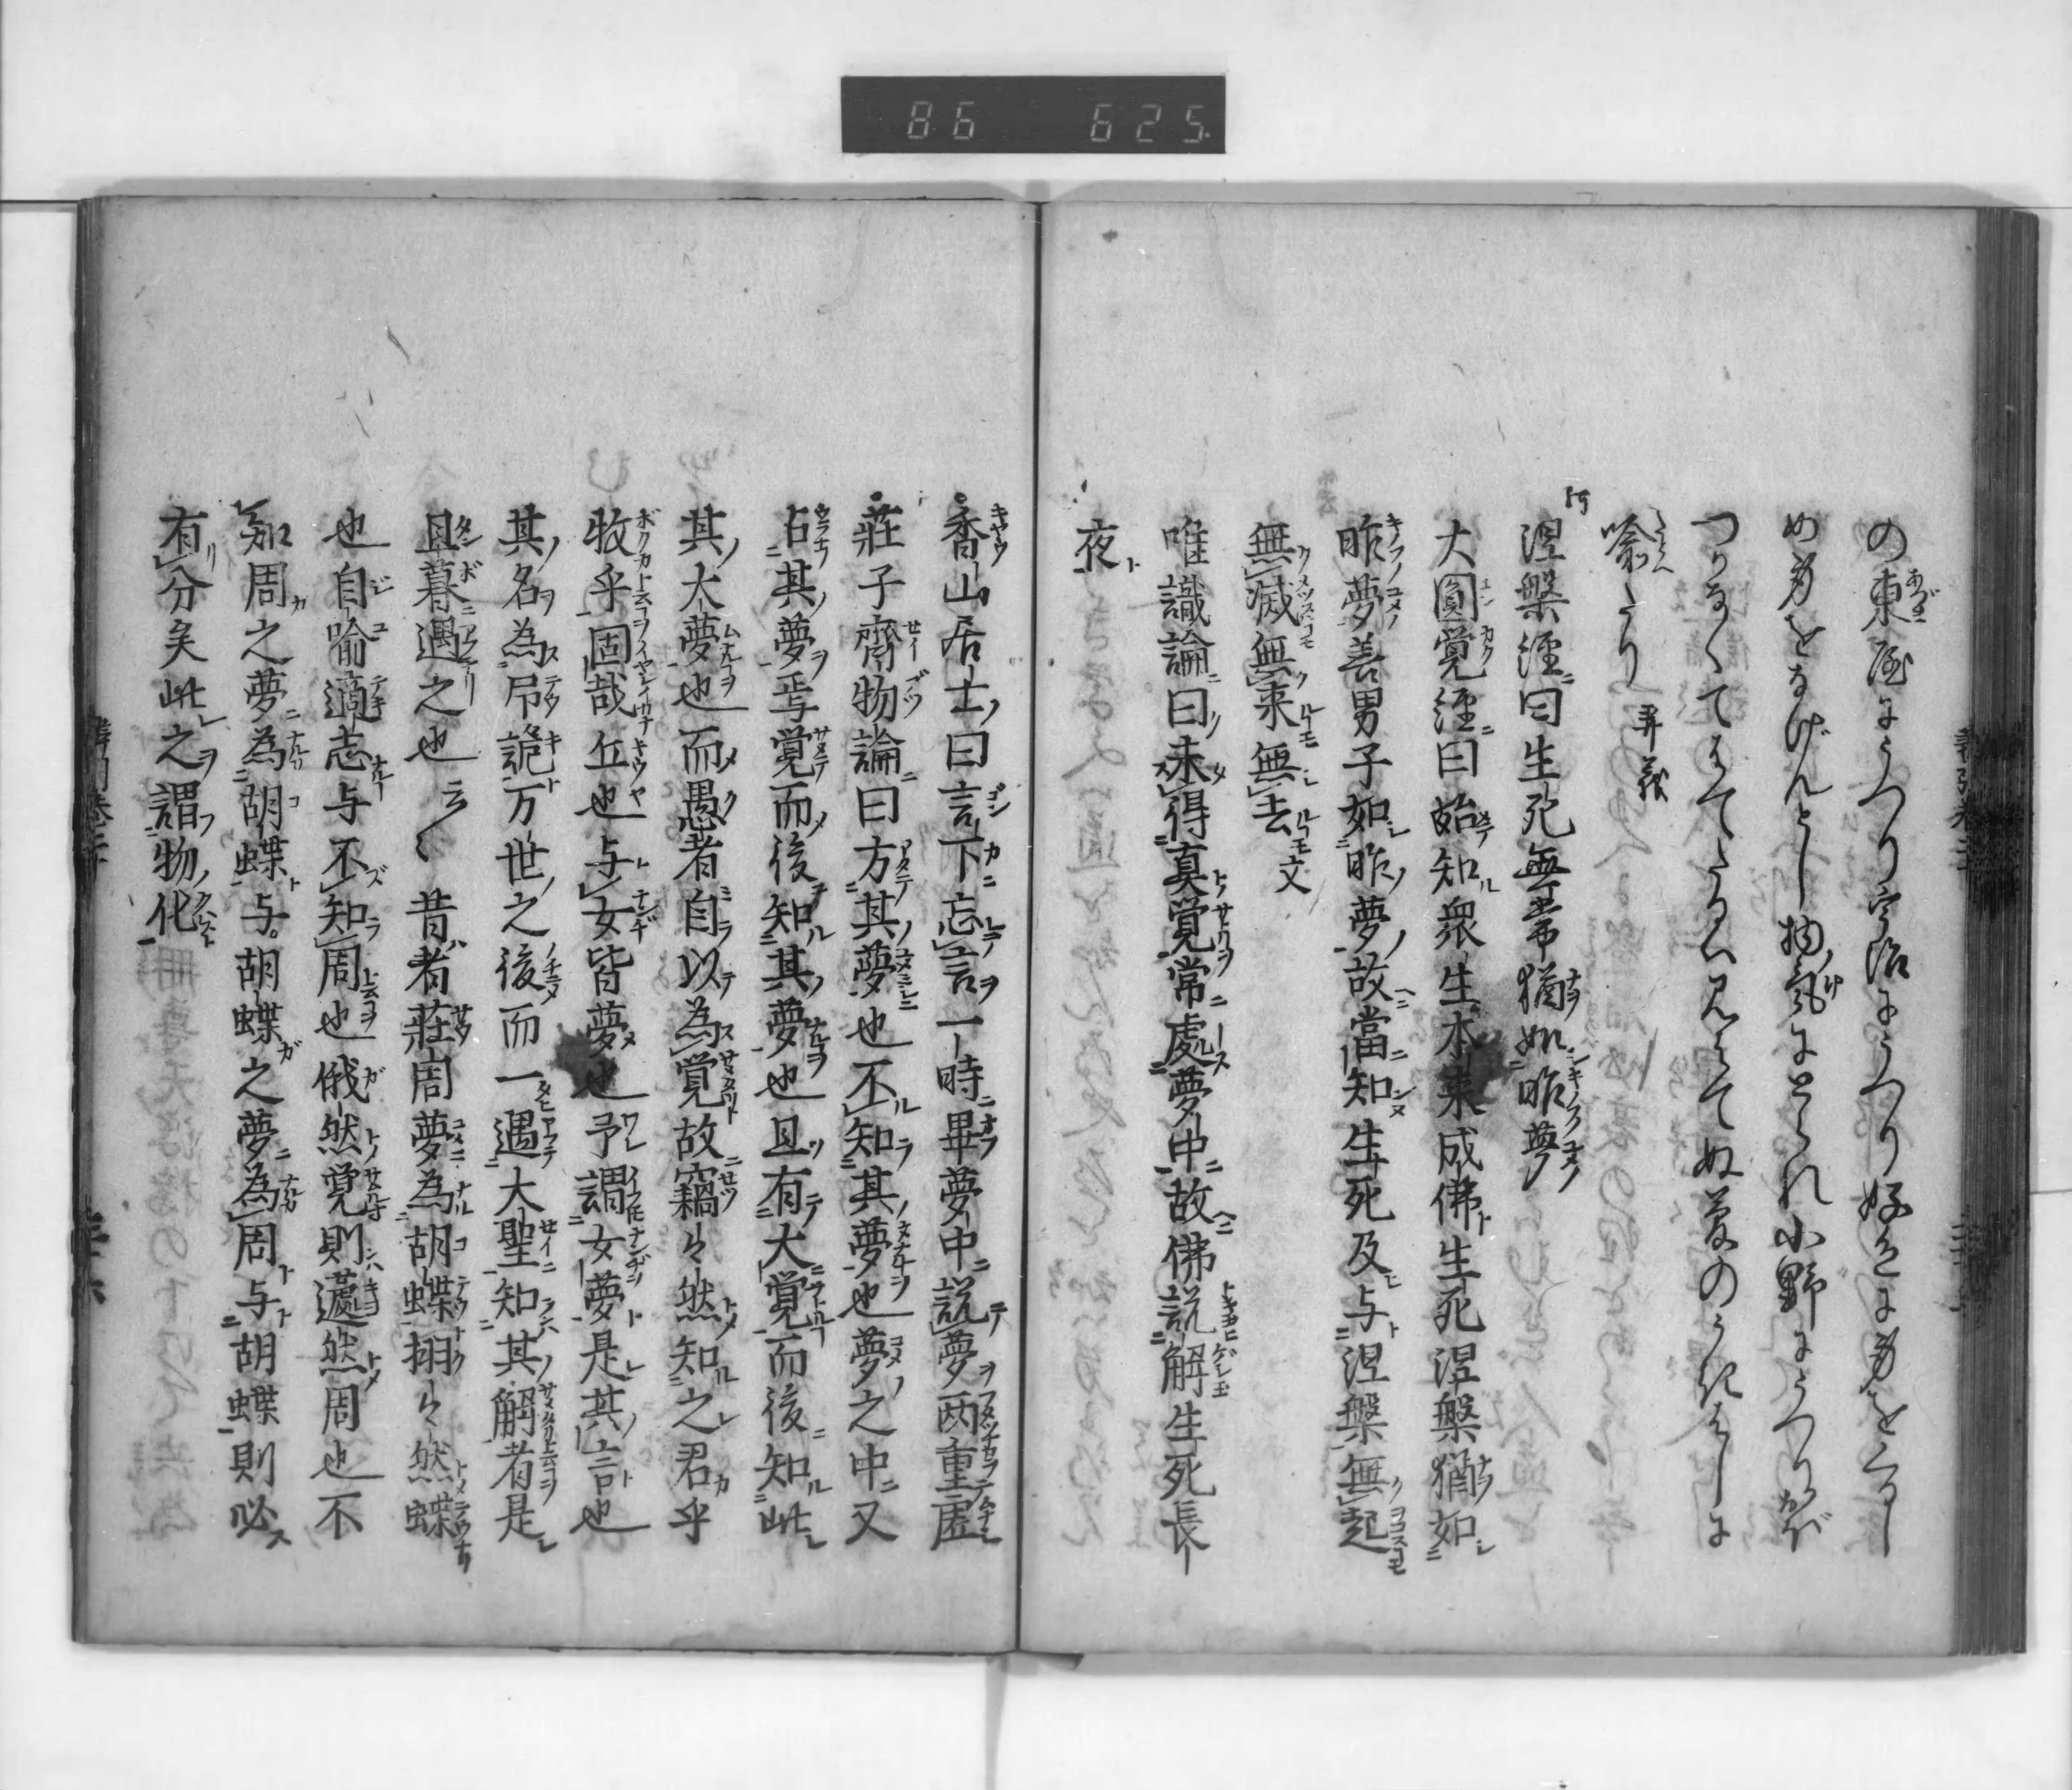 86 625
の東屋にうつり宇治にうつり好色に身をくるし
め身をなげんとし物気にとられ小野にうつりかば
つりなくてはてたるハ見はてぬ夢のうきはしに
喩たり 弄義
涅槃経曰生死無常猶如昨夢
大圓覚経曰始知衆生本来成佛生死涅槃猶如
昨夢善男子如昨夢故當知生死及与涅槃無起
無滅無来無去文
唯識論曰未得真覚常處夢中故佛説解生死長
夜
香山居士曰言下忘言一時畢夢中説夢両重虚
荘子齊物論曰方其夢也不知其夢也夢之中又
占其夢焉覚而後知其夢也且有大覚而後知此
其大夢也而愚者自以為覚故竊々然知之君乎
牧乎固哉丘也与女皆夢也予謂女夢是其言也
其名為吊詭万世之後而一遇大聖知其解者是
且暮遇之也云〱 昔者荘周夢為胡蝶栩々然蝶
也自喩適志与不知周也俄然覚則蘧然周也不
知周之夢為胡蝶与胡蝶之夢為周与胡蝶則必
有分矣此之謂物化